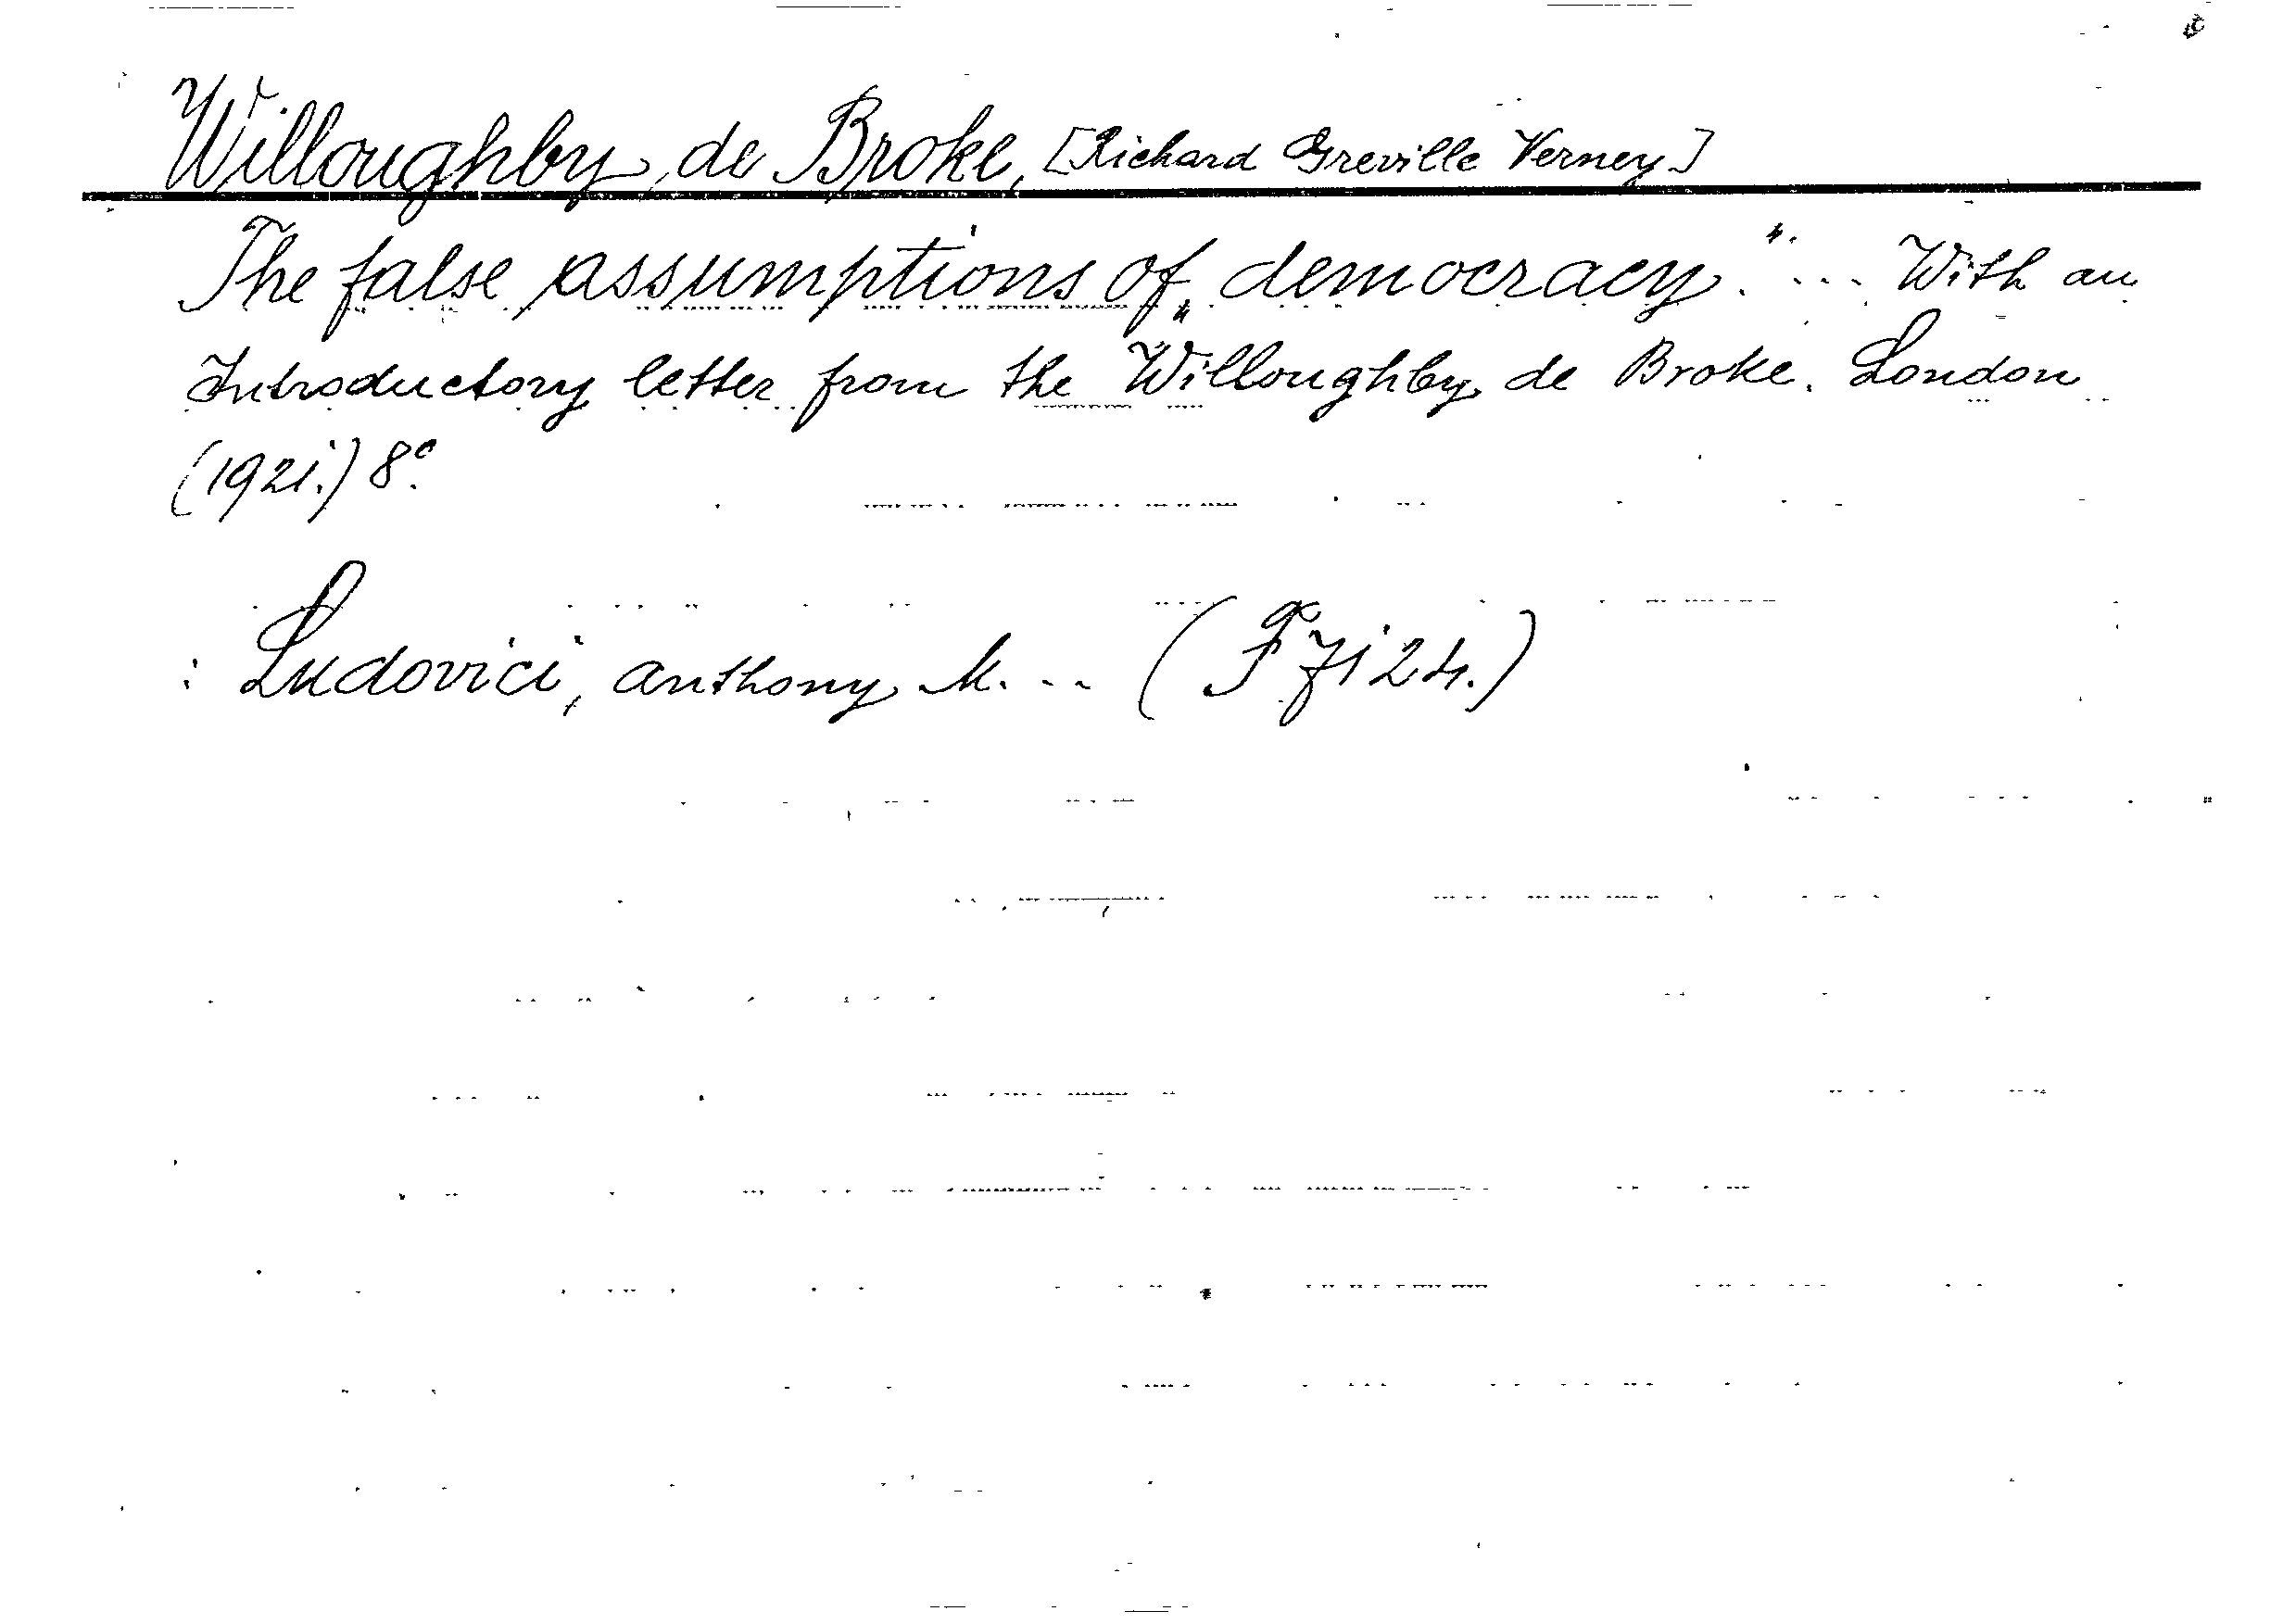 Willoughby de Broke, [Richard Greville Verney]
The false assumptions of "democracy." ... With an
Introductory letter from the Willoughby de Broke. London
(1921.) 8°.
: Ludovici, Anthony M. ... (F 7124.)